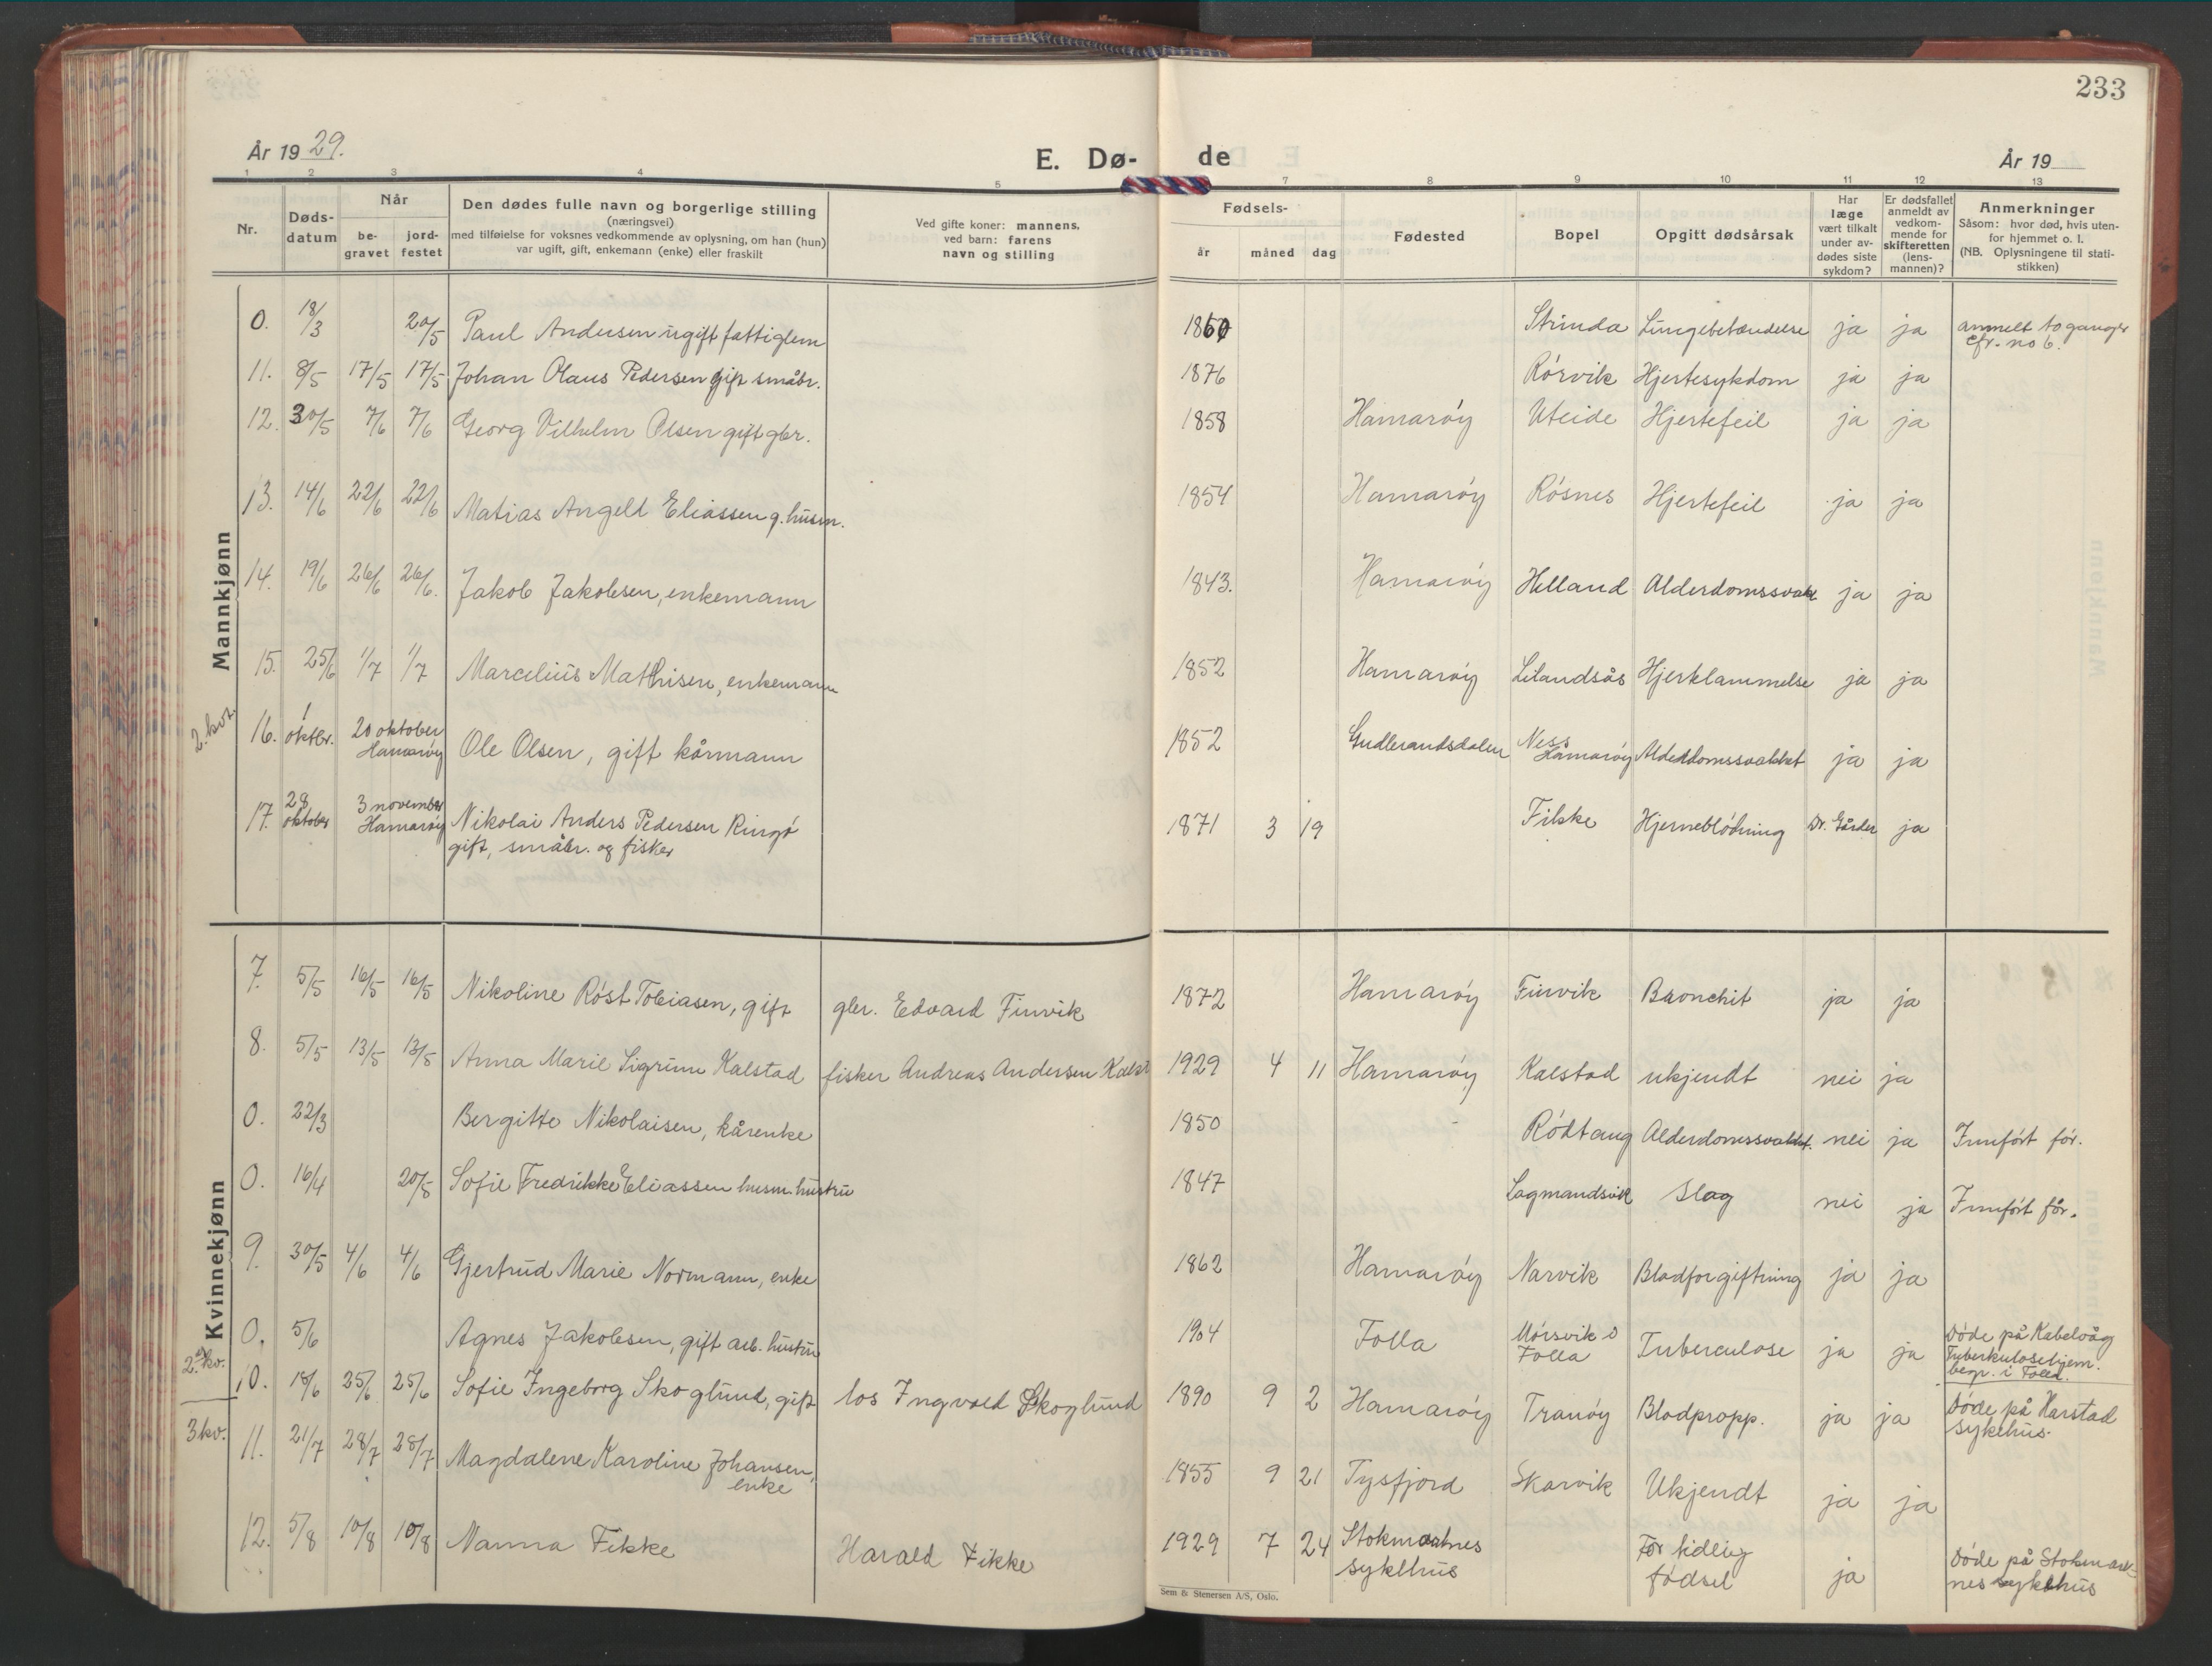 233
År 1929.
E. Dø- de
År 19
1 2 3 4 5 7 8 9 10 11 12 13
Nr.
Døds-
datum
Når
be-
gravet
jord-
festet
Den dødes fulle navn og borgerlige stilling
(næringsvei)
med tilføielse for voksnes vedkommende av oplysning, om han (hun)
var ugift, gift, enkemann (enke) eller fraskilt
Ved gifte koner: mannens,
ved barn: farens
navn og stilling
Fødsels-
år måned dag
Fødested
Bopel
Opgitt dødsårsak
Har
læge
vært tilkalt
under av-
dødes siste
sykdom?
Er dødsfallet
anmeldt av
vedkom-
mende for
skifteretten
(lens-
mannen)?
Anmerkninger
Såsom: hvor død, hvis uten-
for hjemmet o. l.
(NB. Oplysningene til stati-
stikken)
Mannkjønn
0. 18/3 20/5 Paul Andersen ugift fattiglem 1860 Strinda Lungebetændelse ja ja anmelt to ganger
cfr. no 6.
11. 8/5 17/5 17/5 Johan Olaus Pedersen gift småbr. 1876 Rørvik Hjertesykdom ja ja
12. 30/5 7/6 7/6 Georg Vilhelm Olsen gift gbr. 1858 Hamarøy Uteide Hjertefeil ja ja
13. 14/6 22/6 22/6 Matias Angell Eliassen g. husm. 1854 Hamarøy Røsnes Hjertefeil ja ja
14. 19/6 26/6 26/6. Jakob Jakobsen, enkemann 1843. Hamarøy Helland Alderdomssvakh ja ja
15. 25/6 1/7 1/7 Marcelius Mathisen, enkemann 1852 Hamarøy Lilandsås Hjerklammelse ja ja
2. kv.
16. 1 oktbr. 20 oktober
Hamarøy Ole Olsen, gift kårmann 1852 Gudbrandsdalen Ness
Hamarøy Alderdomssvakhet ja ja
17. 28
oktober 3 november
Hamarøy Nikolai Anders Pedersen Ringø
gift, småbr. og fisker 1871 3 19 Fikke Hjerneblødning Dr. Gårder ja
Kvinnekjønn
7. 5/5 16/5 16/5 Nikoline Røst Tobiasen, gift gbr. Edvard Finvik 1872 Hamarøy Finvik Bronchit ja ja
8. 5/5 13/5 13/5 Anna Marie Sigrunn Kalstad fisker Andreas Andersen Kalst 1929 4 11 Hamarøy Kalstad ukjendt nei ja
0. 22/3 Bergitte Nikolaisen, kårenke 1850 Rødtang Alderdomssvakht. nei ja Innført før.
0. 16/4 20/5 Sofie Fredrikke Eliassen husm. hustru 1847 Lagmandsvik Slag nei ja Innført før.
9. 30/5 4/6 4/6 Gjertrud Marie Normann, enke 1862 Hamarøy Narvik Blodforgiftning ja ja
0. 5/6 Agnes Jakobsen, gift arb. hustru 1904 Folla Mørsvik i
Folla Tuberculose ja ja Døde på Kabelvåg
Tuberkulosehjem.
begr. i Folla.
2. kv.
10. 18/6 25/6 25/6 Sofie Ingeborg Skoglund, gift los Ingvald Skoglund 1890 9 2 Hamarøy Tranøy Blodpropp. ja ja Døde på Harstad
sykehus.
3 kv.
11. 21/7 28/7 28/7 Magdalene Karoline Johansen,
enke 1855 9 21 Tysfjord Skarvik Ukjendt ja ja
12. 5/8 10/8 10/8 Nanna Fikke Harald Fikke 1929 7 24 Stokmarknes
sykehus For tidlig
fødsel ja Døde på Stokmark-
nes sykehus
Sem & Stenersen A/S, Oslo.